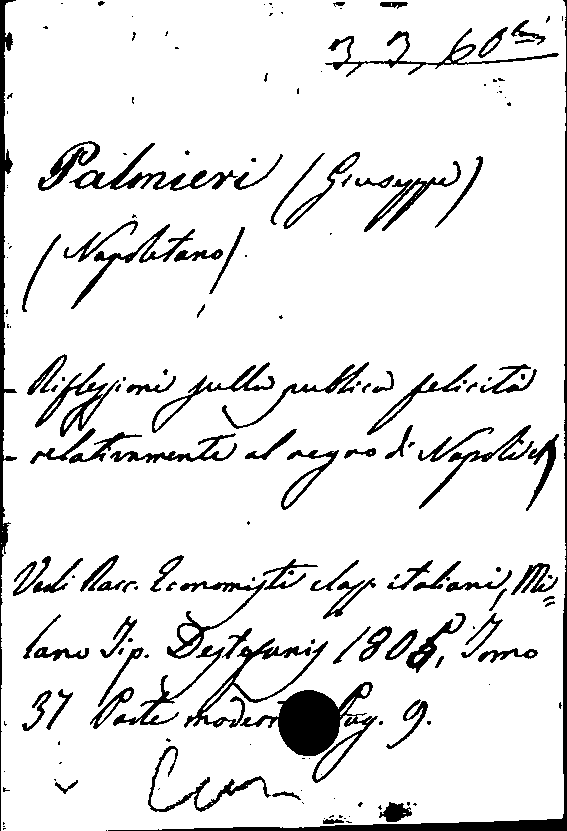 3, 3, 60
Palmieri (Giuseppe)
(Napoletano)
- Riflessioni sulla publica felicità
- relativamente al regno di Napoli
Vedi Racc. Economisti class. italiani, Mi=
lano Tip. Destefanis 1805, Tomo
37 Parte modern Pag. 9.